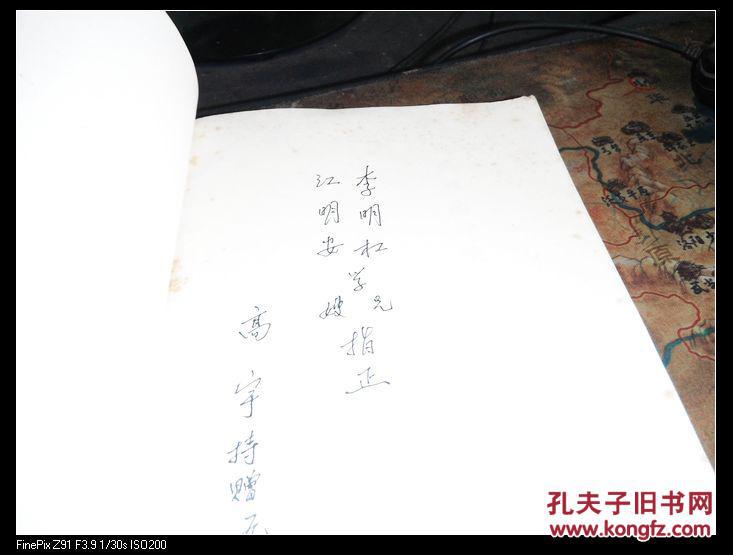 李明权学兄
江明安 嫂
指正
高宇持赠
孔夫子旧书网
www.kongfz.com
FinePix Z91 F3.9 1/30s ISO200